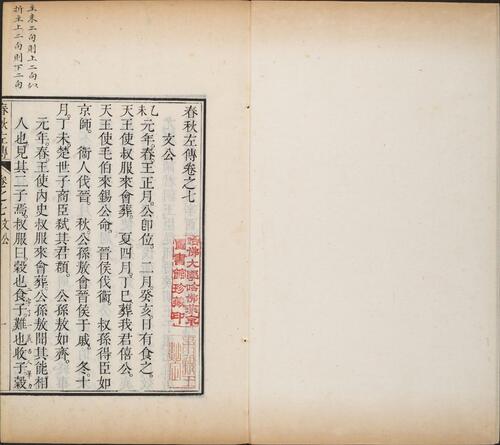 主末二句則上二句以
折主上二句則下二句
春秋左傳卷之七
文公
乙未
元年。春王正月。公卽位。二月癸亥日有食之。
天王使叔服來會葬。夏四月。丁巳葬我君僖公。
天王使毛伯來錫公命。晉侯伐衞。叔孫得臣如
京師。衞人伐晉。秋公孫敖會晉侯于戚。冬十
月。丁未楚世子商臣弑其君頵。公孫敖如齊。
元年。春王使內史叔服來會葬。公孫敖聞其能相
人也見其二子焉叔服曰穀也食子難也收子穀
春秋左傳
卷之七文公
一
哈佛大學哈佛燕京
圖書館珍藏印